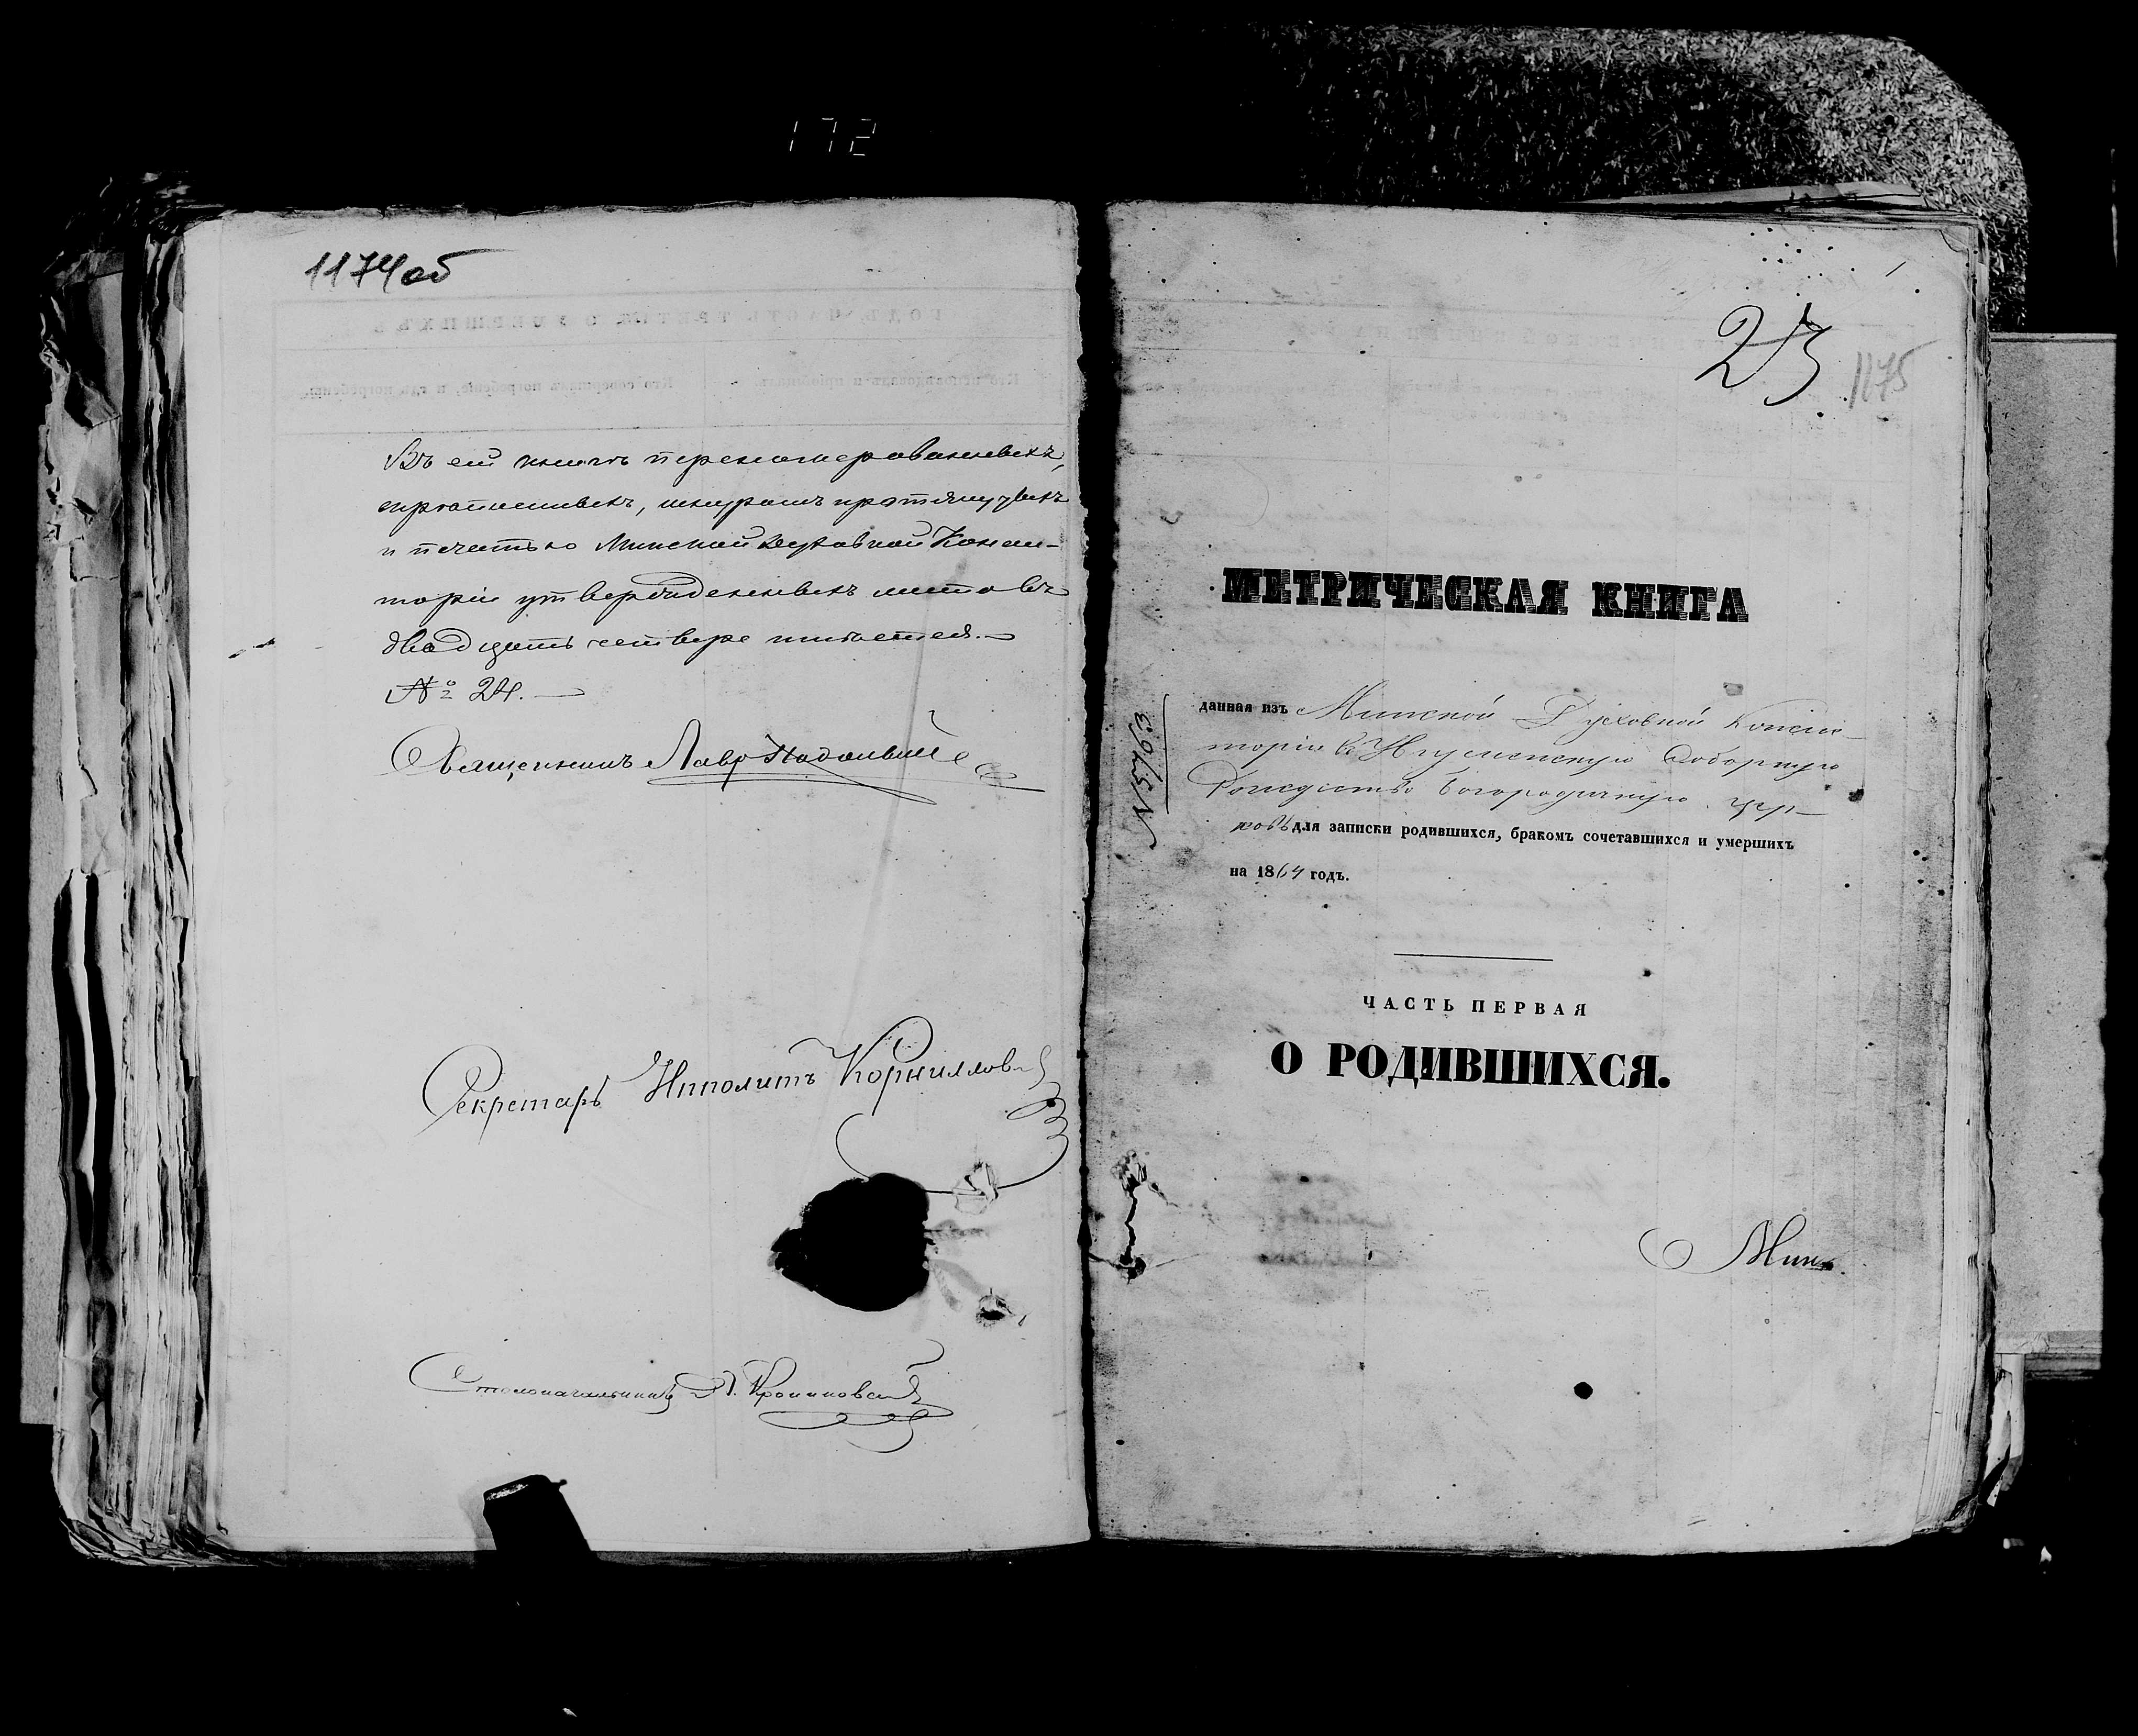 172
1174об
Въ сей книгѣ переномерованныхъ,
скрѣпленныхъ, шнуромъ протянутыхъ
и печатью Минской Духовной Консис-
торіи утвержденныхъ листовъ
двадцать четыре имѣется.
№ 24.
Священникъ Лавр
Секретарь Ипполитъ Корниллов
Столоначальникъ
1
23
1175
МЕТРИЧЕСКАЯ КНИГА
данная изъ Минской Духовной Консис-
торіи въ Игуменскую Соборную
Рождество Богородичную цер-
ковь для записки родившихся, бракомъ сочетавшихся и умершихъ
на 1864 годъ.
ЧАСТЬ ПЕРВАЯ
О РОДИВШИХСЯ.